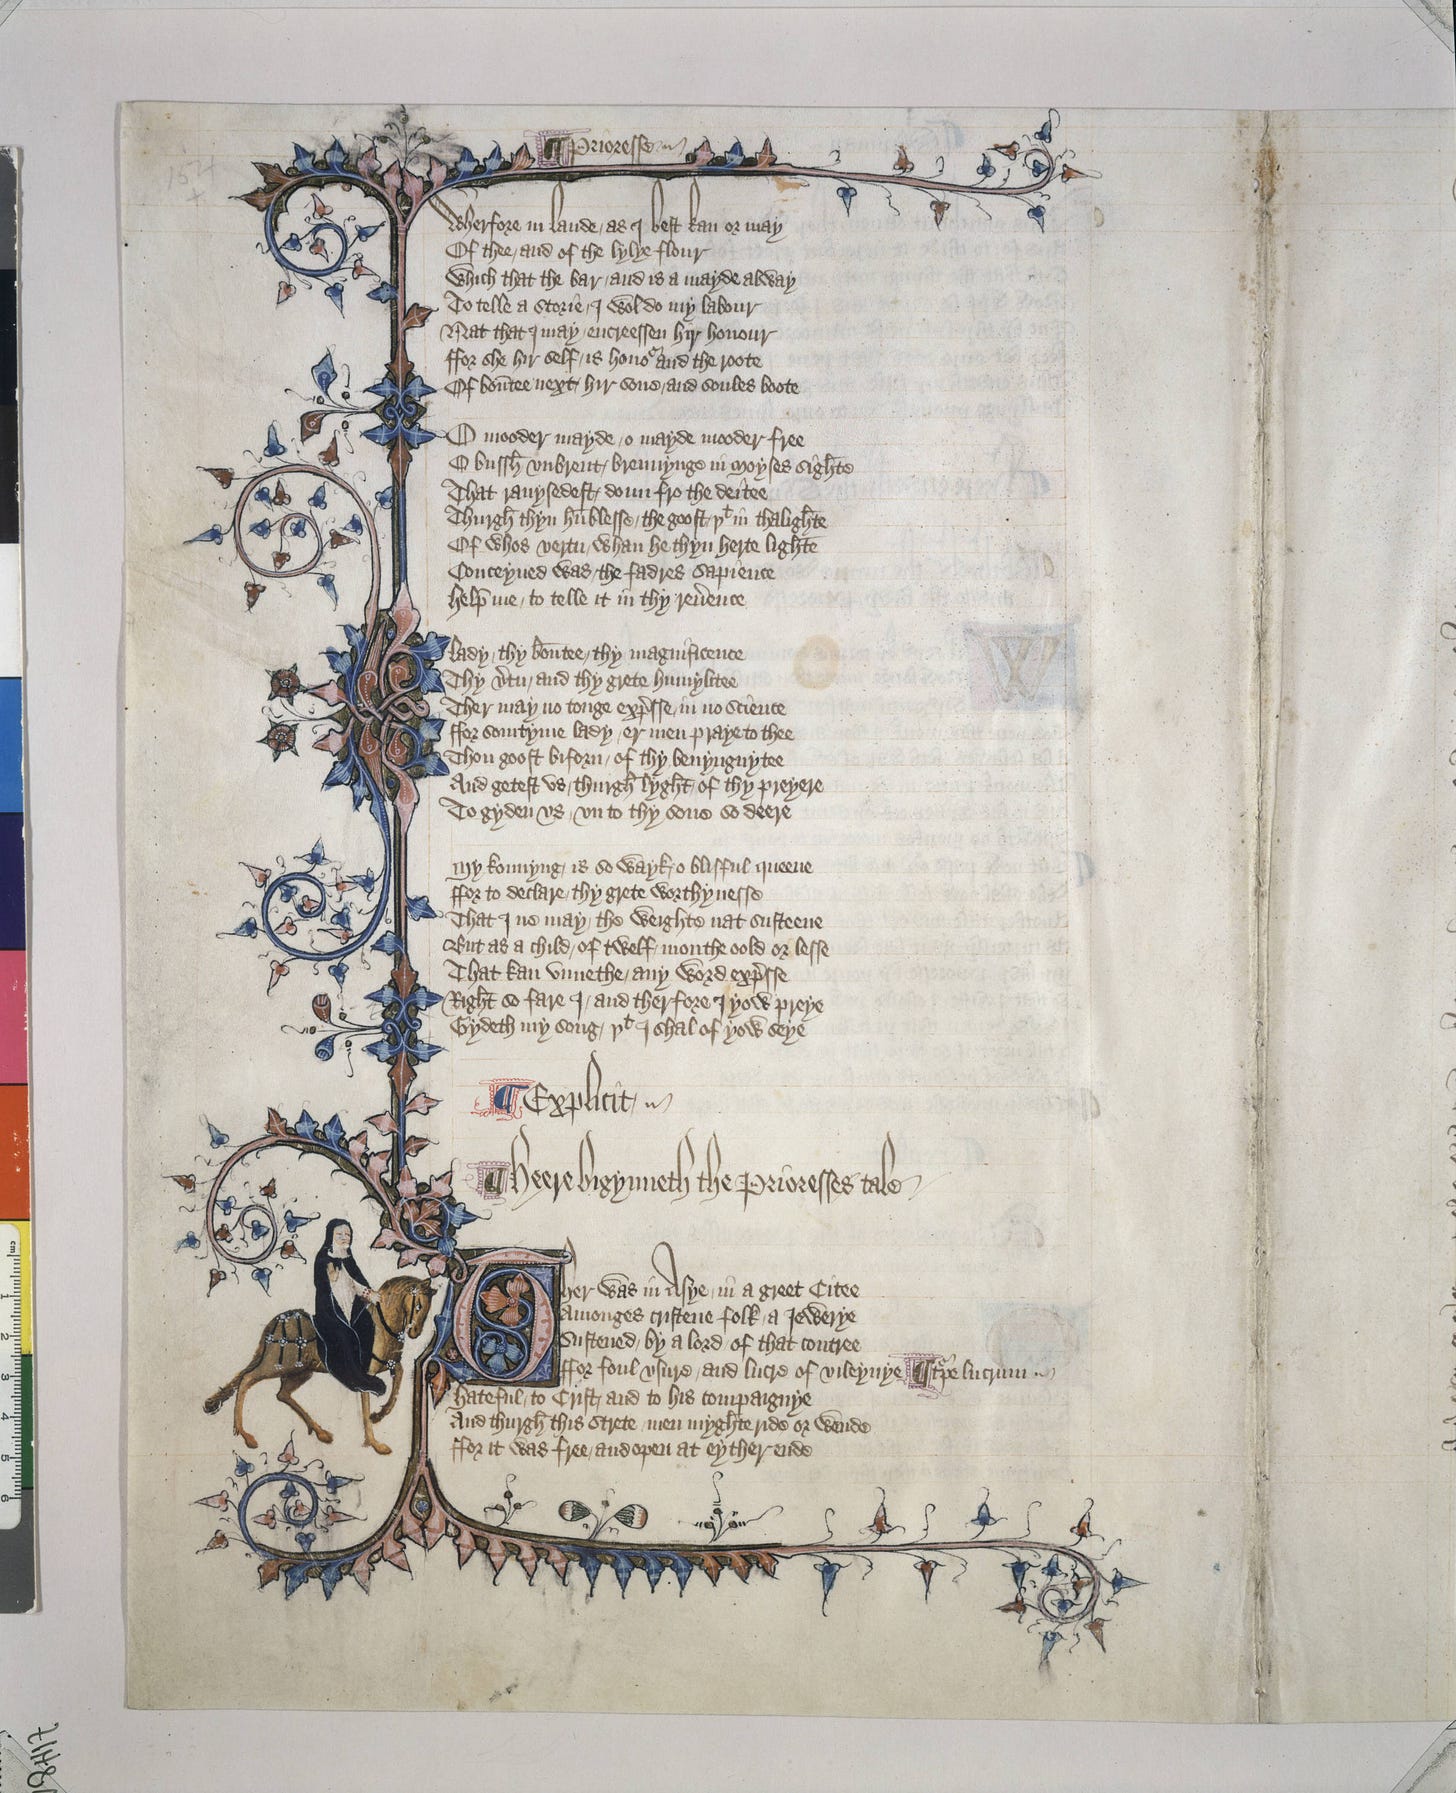 ¶ Prioresse
Wherfore in laude / as I best kan or may
Of thee / and of the lylye flour
Which that the bar / and is a mayde alway
To telle a storie / I wol do my labour
Nat that I may / encreessen hir honour
ffor she hir self / is honour and the roote
Of bountee next / hir sone / and soules boote
O mooder mayde / o mayde mooder free
O bussh vnbrent / brennynge in Moyses sighte
That rauysedest / doun fro the deitee
Thurgh thyn hūblesse / the goost / yt in thalighte
Of whos vertu / whan he thyn herte lighte
Conceyued was / the fadres sapience
Help me / to telle it in thy reuence
Lady / thy bountee / thy magnificence
Thy vtu / and thy grete humylitee
Ther may no tonge expsse / in no science
ffor somtyme lady / er men praye to thee
Thou goost biforn / of thy benyngnytee
And getest vs / thurgh lyght / of thy preyere
To gyden vs / vn to thy sone so deere
My konnyng / is so wayk / o blisful queene
ffor to declare / thy grete worthynesse
That I ne may / the weighte nat susteene
But as a child / of twelf monthe oold or lesse
That kan vnnethe / any word expsse
Right so fare I / and therfore I yow preye
Gydeth my song / yt I shal of yow seye
¶ Explicit
¶ Heere bigynneth the Prioresses tale
Ther was in Asye / in a greet Citee
Amonges cristene folk / a Jewerye
Sustened / by a lord / of that contree
ffor foul vsure / and lucre of vileynye ¶ turpe lucrum
Hateful / to Crist / and to his compaignye
And thurgh this strete / men myghte ride or wende
ffor it was free / and open at eyther ende